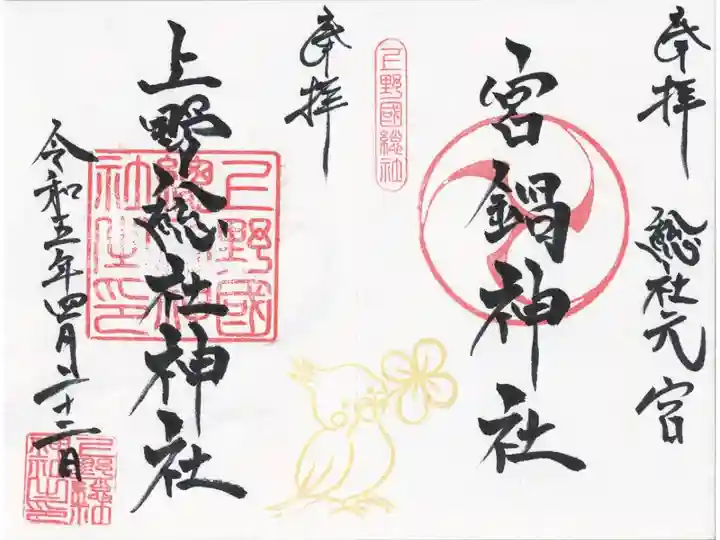 奉拝
総社元宮
宮鍋神社
上野國総社
奉拝
上野総社神社
上野國
総社神
社之印
令和五年四月二十二日